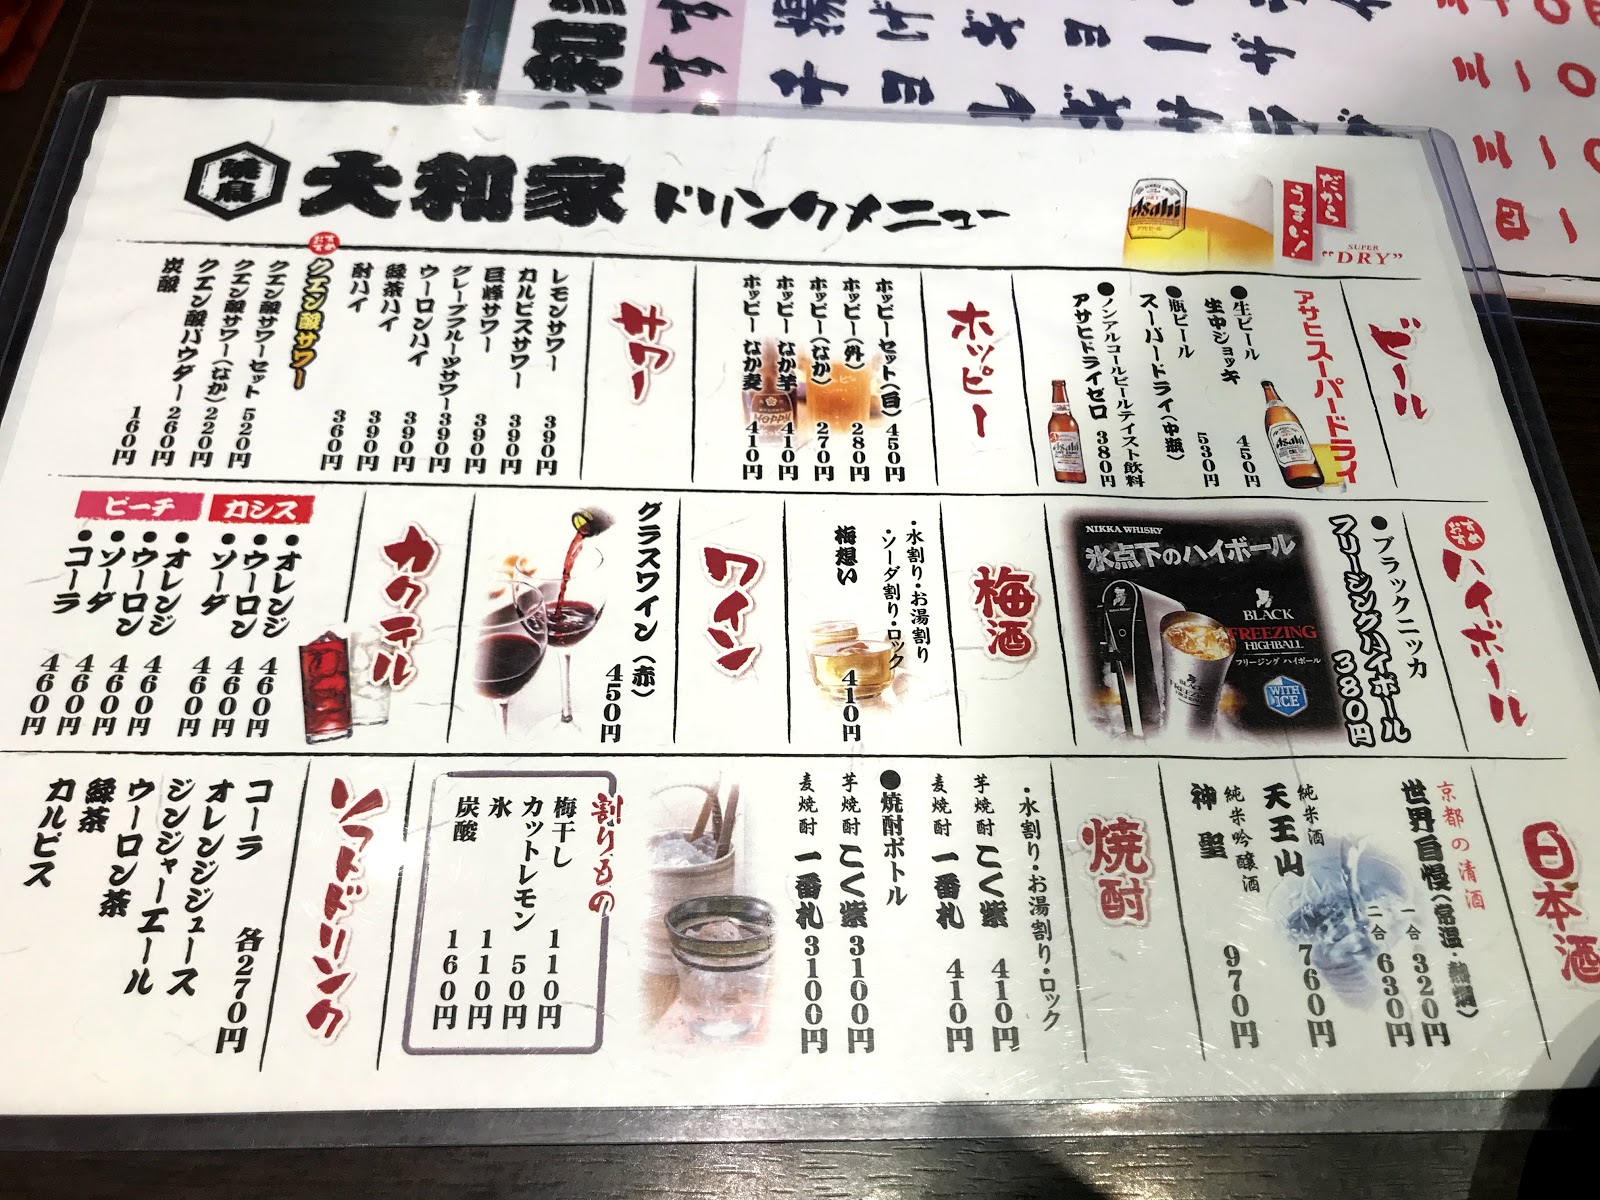 大和家 ドリンクメニュー
だから
うまい!
Asahi
SUPER
"DRY"
ビール
アサヒスーパードライ
●生ビール
生中ジョッキ 450円
●瓶ビール
スーパードライ(中瓶) 530円
●ノンアルコールビールテイスト飲料
アサヒドライゼロ 380円
ホッピー
ホッピーセット(白) 450円
ホッピー(外) 280円
ホッピー(なか) 270円
ホッピーなか芋 410円
ホッピーなか麦 410円
サワー
レモンサワー 390円
カルピスサワー 390円
巨峰サワー 390円
グレープフルーツサワー 390円
ウーロンハイ 390円
緑茶ハイ 390円
酎ハイ 360円
おすすめ
クエン酸サワー
クエン酸サワーセット 520円
クエン酸サワー(なか) 220円
クエン酸パウダー 260円
炭酸 160円
おすすめ
ハイボール
●ブラックニッカ
フリージングハイボール
380円
NIKKA WHISKY
氷点下のハイボール
BLACK
FREEZING
HIGHBALL
フリージング ハイボール
WITH
ICE
梅酒
・水割り・お湯割り
・ソーダ割り・ロック
梅想い 410円
ワイン
グラスワイン(赤)
450円
カクテル
カシス
●オレンジ 460円
●ウーロン 460円
●ソーダ 460円
ピーチ
●オレンジ 460円
●ウーロン 460円
●ソーダ 460円
●コーラ 460円
日本酒
京都の清酒
世界自慢(常温・熱燗)
一合 320円
二合 630円
純米酒
天王山 760円
純米吟醸酒
神聖 970円
焼酎
・水割り・お湯割り・ロック
芋焼酎 こく紫 410円
麦焼酎 一番札 410円
●焼酎ボトル
芋焼酎 こく紫 3100円
麦焼酎 一番札 3100円
割りもの
梅干し 110円
カットレモン 50円
氷 110円
炭酸 160円
ソフトドリンク
各270円
コーラ
オレンジジュース
ジンジャーエール
ウーロン茶
緑茶
カルピス